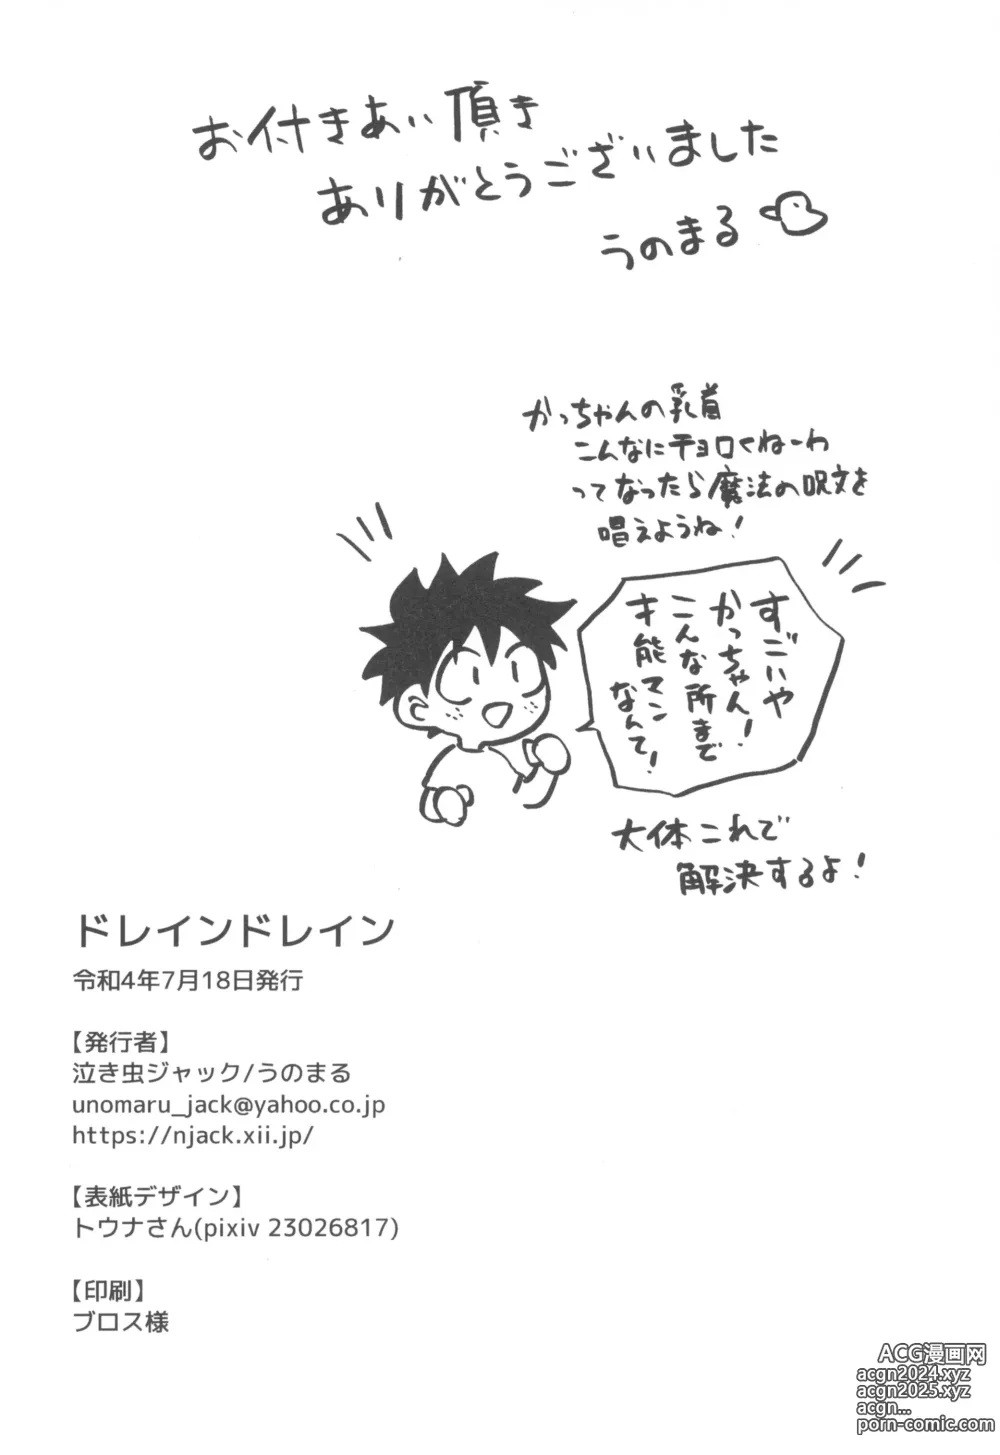 お付きあい頂き
ありがとうございました
うのまる
かっちゃんの乳首
こんなにチョロくねーわ
ってなったら魔法の呪文を
唱えようね!
すごいや
かっちゃん!
こんな所まで
才能マン
なんて!
大体これで
解決するよ!
ドレインドレイン
令和4年7月18日発行
【発行者】
泣き虫ジャック/うのまる
unomaru_jack@yahoo.co.jp
https://njack.xii.jp/
【表紙デザイン】
トウナさん(pixiv 23026817)
【印刷】
ブロス様
ACG漫画网
acgn2024.xyz
acgn2025.xyz
acgn...
porn-comic.com